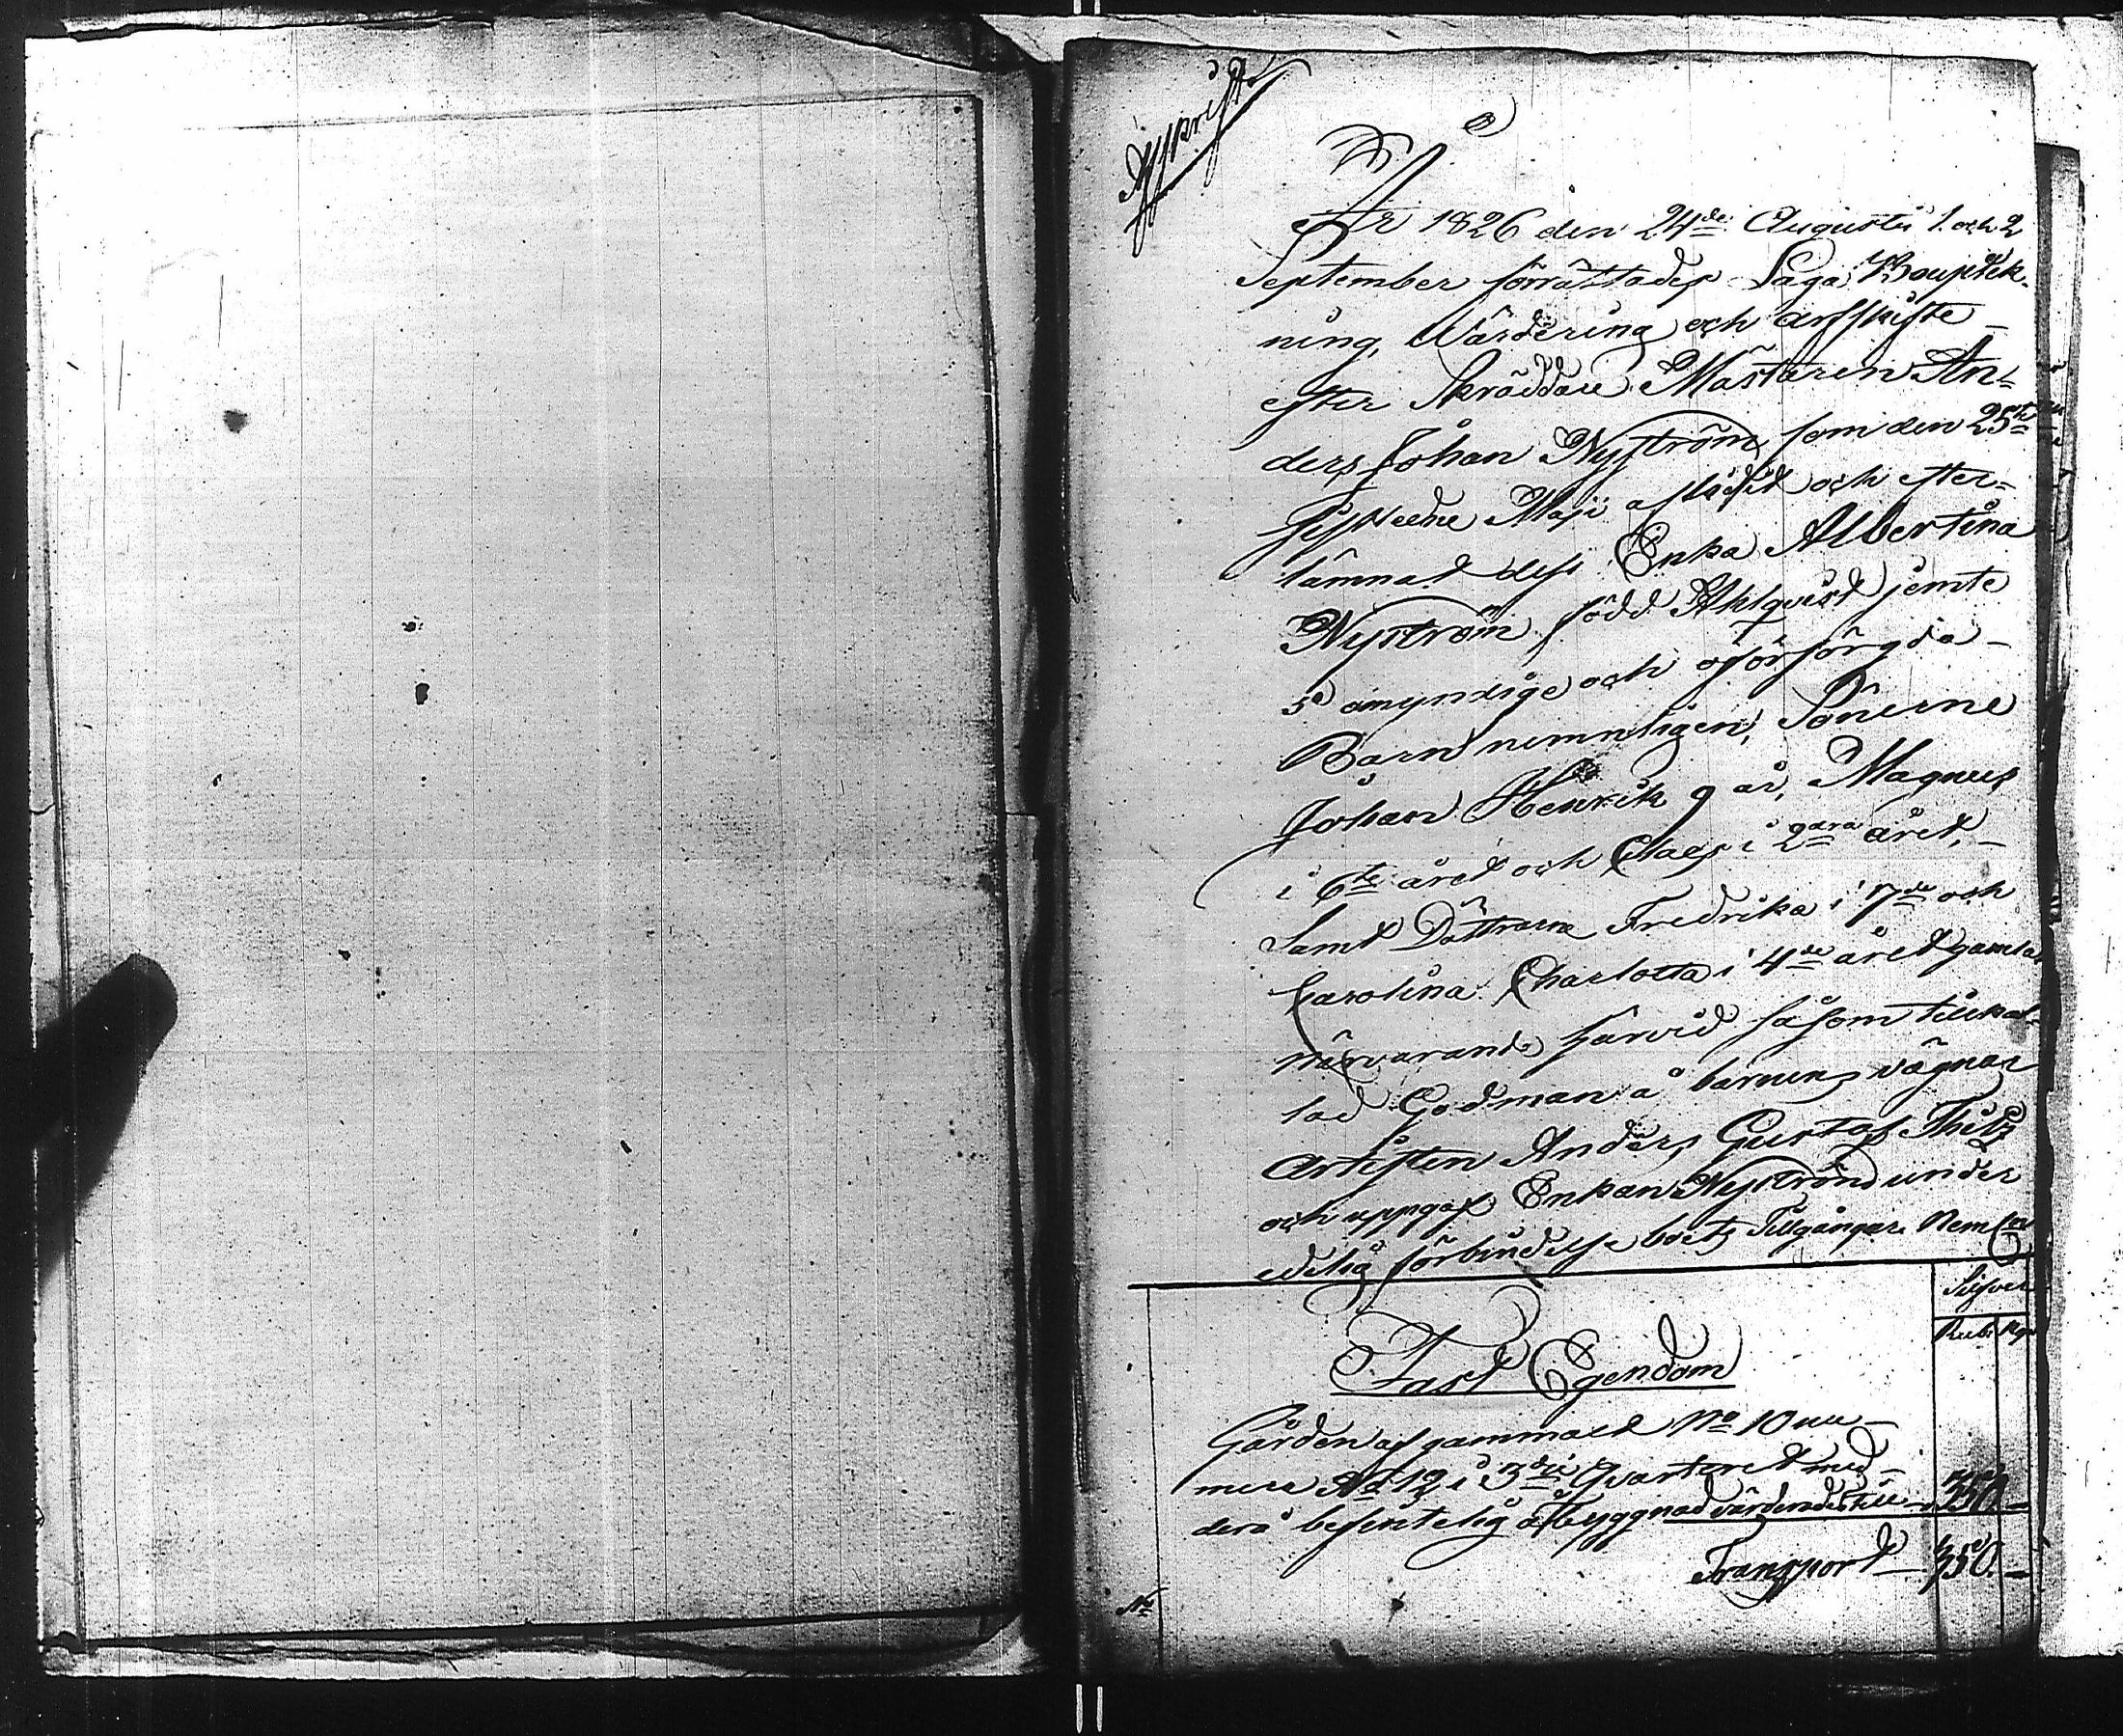 Afskrift
År 1826 den 24de Augusti 1. och 2
September förrättades Laga Bouptek-
ning, Wärdering och arfskifte
efter Skräddare Mästaren An=
ders Johan Nyström, som den 25te
sistledne Maji aflidit och efter=
lämnat dess Enka Albertina
Nyström född Ahlqvist jemte
5 omyndige och oförsörgda
Barn nemnligen, Sönerne
Johan Henrik 9 år, Magnus
i 6te året och Claes i 2dra året,
Samt Döttrarne Fredrika i 7de och
Carolina Charlotta i 4de året gamla
närvarande härvid såsom tillkal-
lad Godman å barnens vägnar
Artisten Anders Gustaf
och uppgaf Enkan Nyström under
edelig förbindelse boets Tillgångar Neml:n
Silfver
Rub: Kop
Fast Egendom
Gården af gammalt No 10 nu-
mera No 12 i 3dje Qvarteret med
derå befintelig åbyggnad värderades till 350 -
Transport 350. -
No